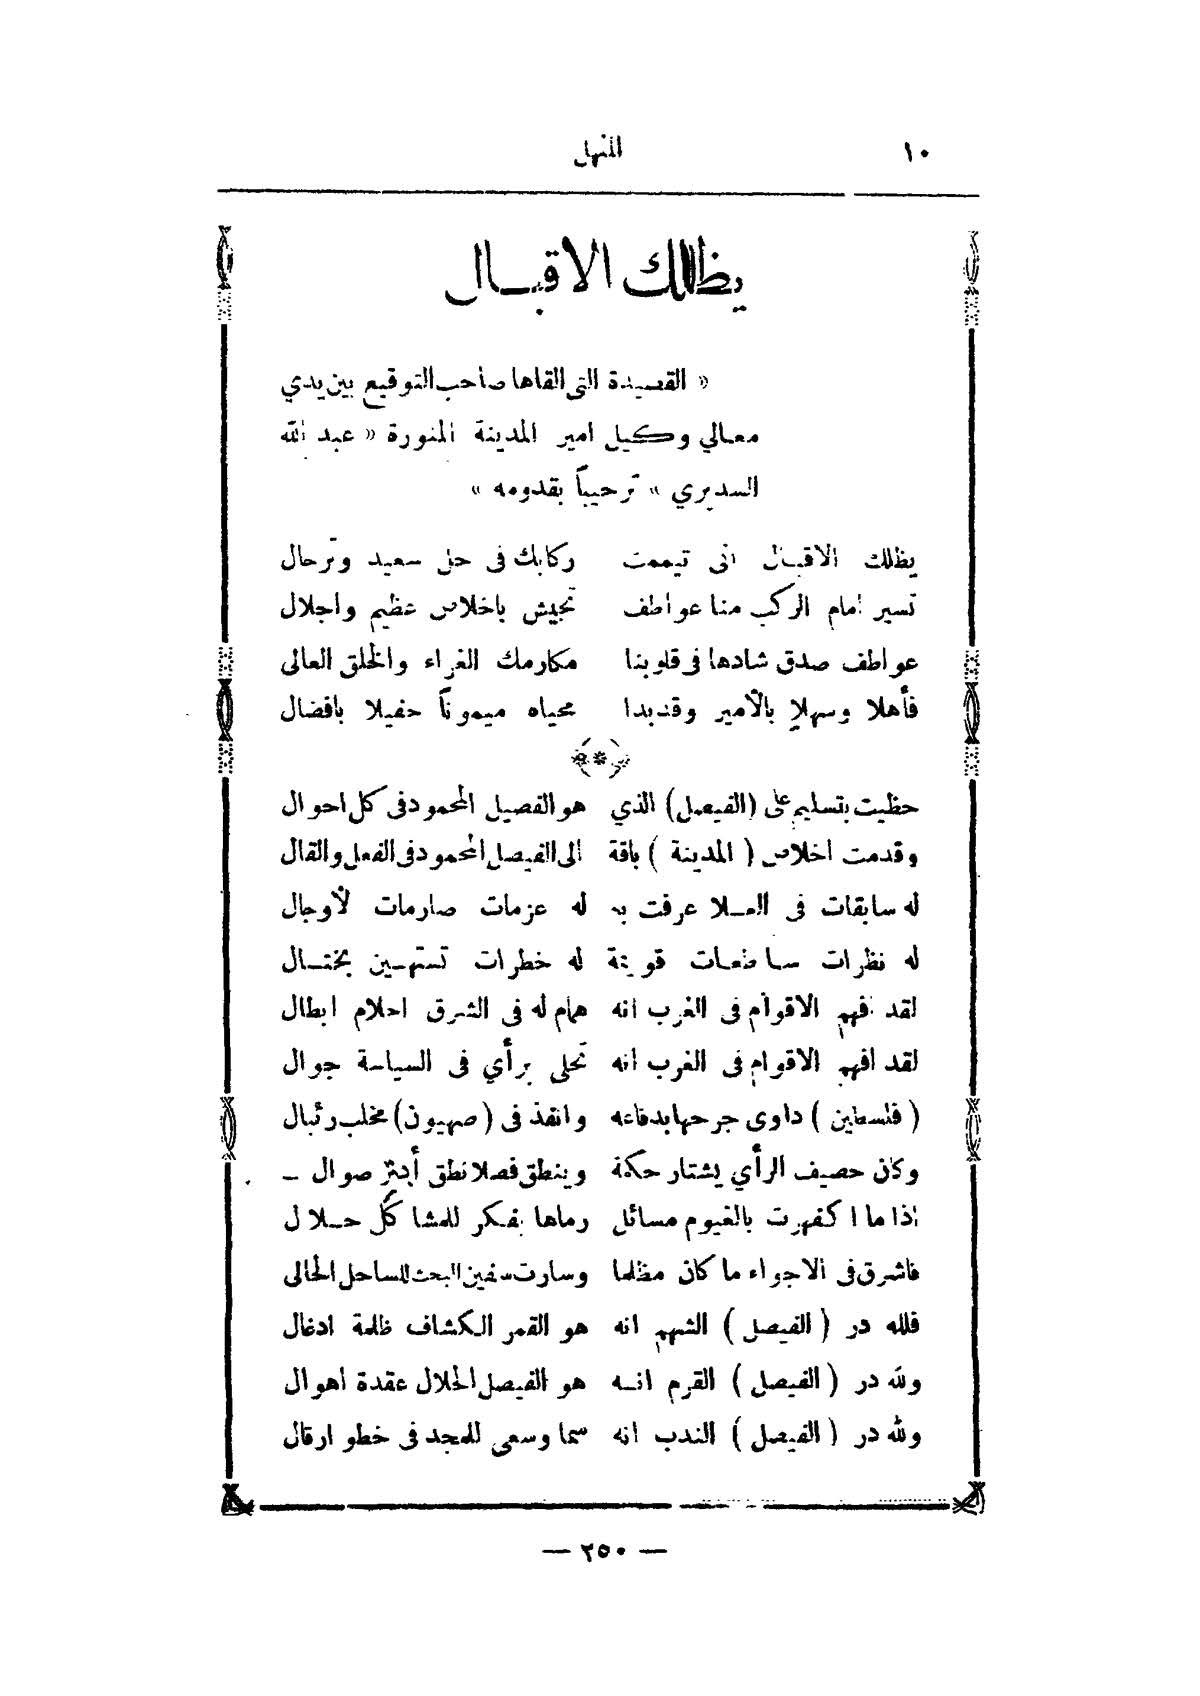 ١٠ المنهل
يظللك الاقبال
« القصيدة التى القاها صاحب التوقيع بين يدي
معالي وكيل امير المدينة المنورة « عبد الله
السديري » ترحيباً بقدومه »
يظللك الاقبال انى تيممت ركابك فى حل سعيد وترحال
تسير امام الركب منا عواطف تجيش باخلاص عظيم واجلال
عواطف صدق شادها فى قلوبنا مكارمك الغراء والخلق العالى
فأهلا وسهلا بالأمير وقد بدا محياه ميموناً حفيلا بافضال
حظيت بتسليم على (الفيصل) الذي هو الفصيل المحمود فى كل احوال
وقدمت اخلاص ( المدينة ) باقة الى الفيصل المحمود فى الفعل والقال
له سابقات فى العلا عرفت به له عزمات صارمات لأوجال
له نظرات ساطعات قوية له خطرات تستهين بختال
لقد افهم الاقوام فى الغرب انه همام له فى الشرق احلام ابطال
لقد افهم الاقوام فى الغرب انه تحلى برأي فى السياسة جوال
( فلسطين ) داوى جرحها بدفاعه وانقذ فى (صهيون) مخلب رئبال
وكان حصيف الرأي يشتار حكمة وينطق فصلا نطق صوال –
اذا ما اكفهرت بالغيوم مسائل رماها بفكر للمشاكل حلال
فاشرق فى الاجواء ما كان مظلما وسارت سفين البحث للساحل الحالى
فلله در ( الفيصل ) الشهم انه هو القمر الكشاف ظلمة ادغال
ولله در ( الفيصل ) القرم انه هو الفيصل الحلال عقدة اهوال
ولله در ( الفيصل ) الندب انه سما وسعى للمجد فى خطو ارقال
— ٢٥٠ —